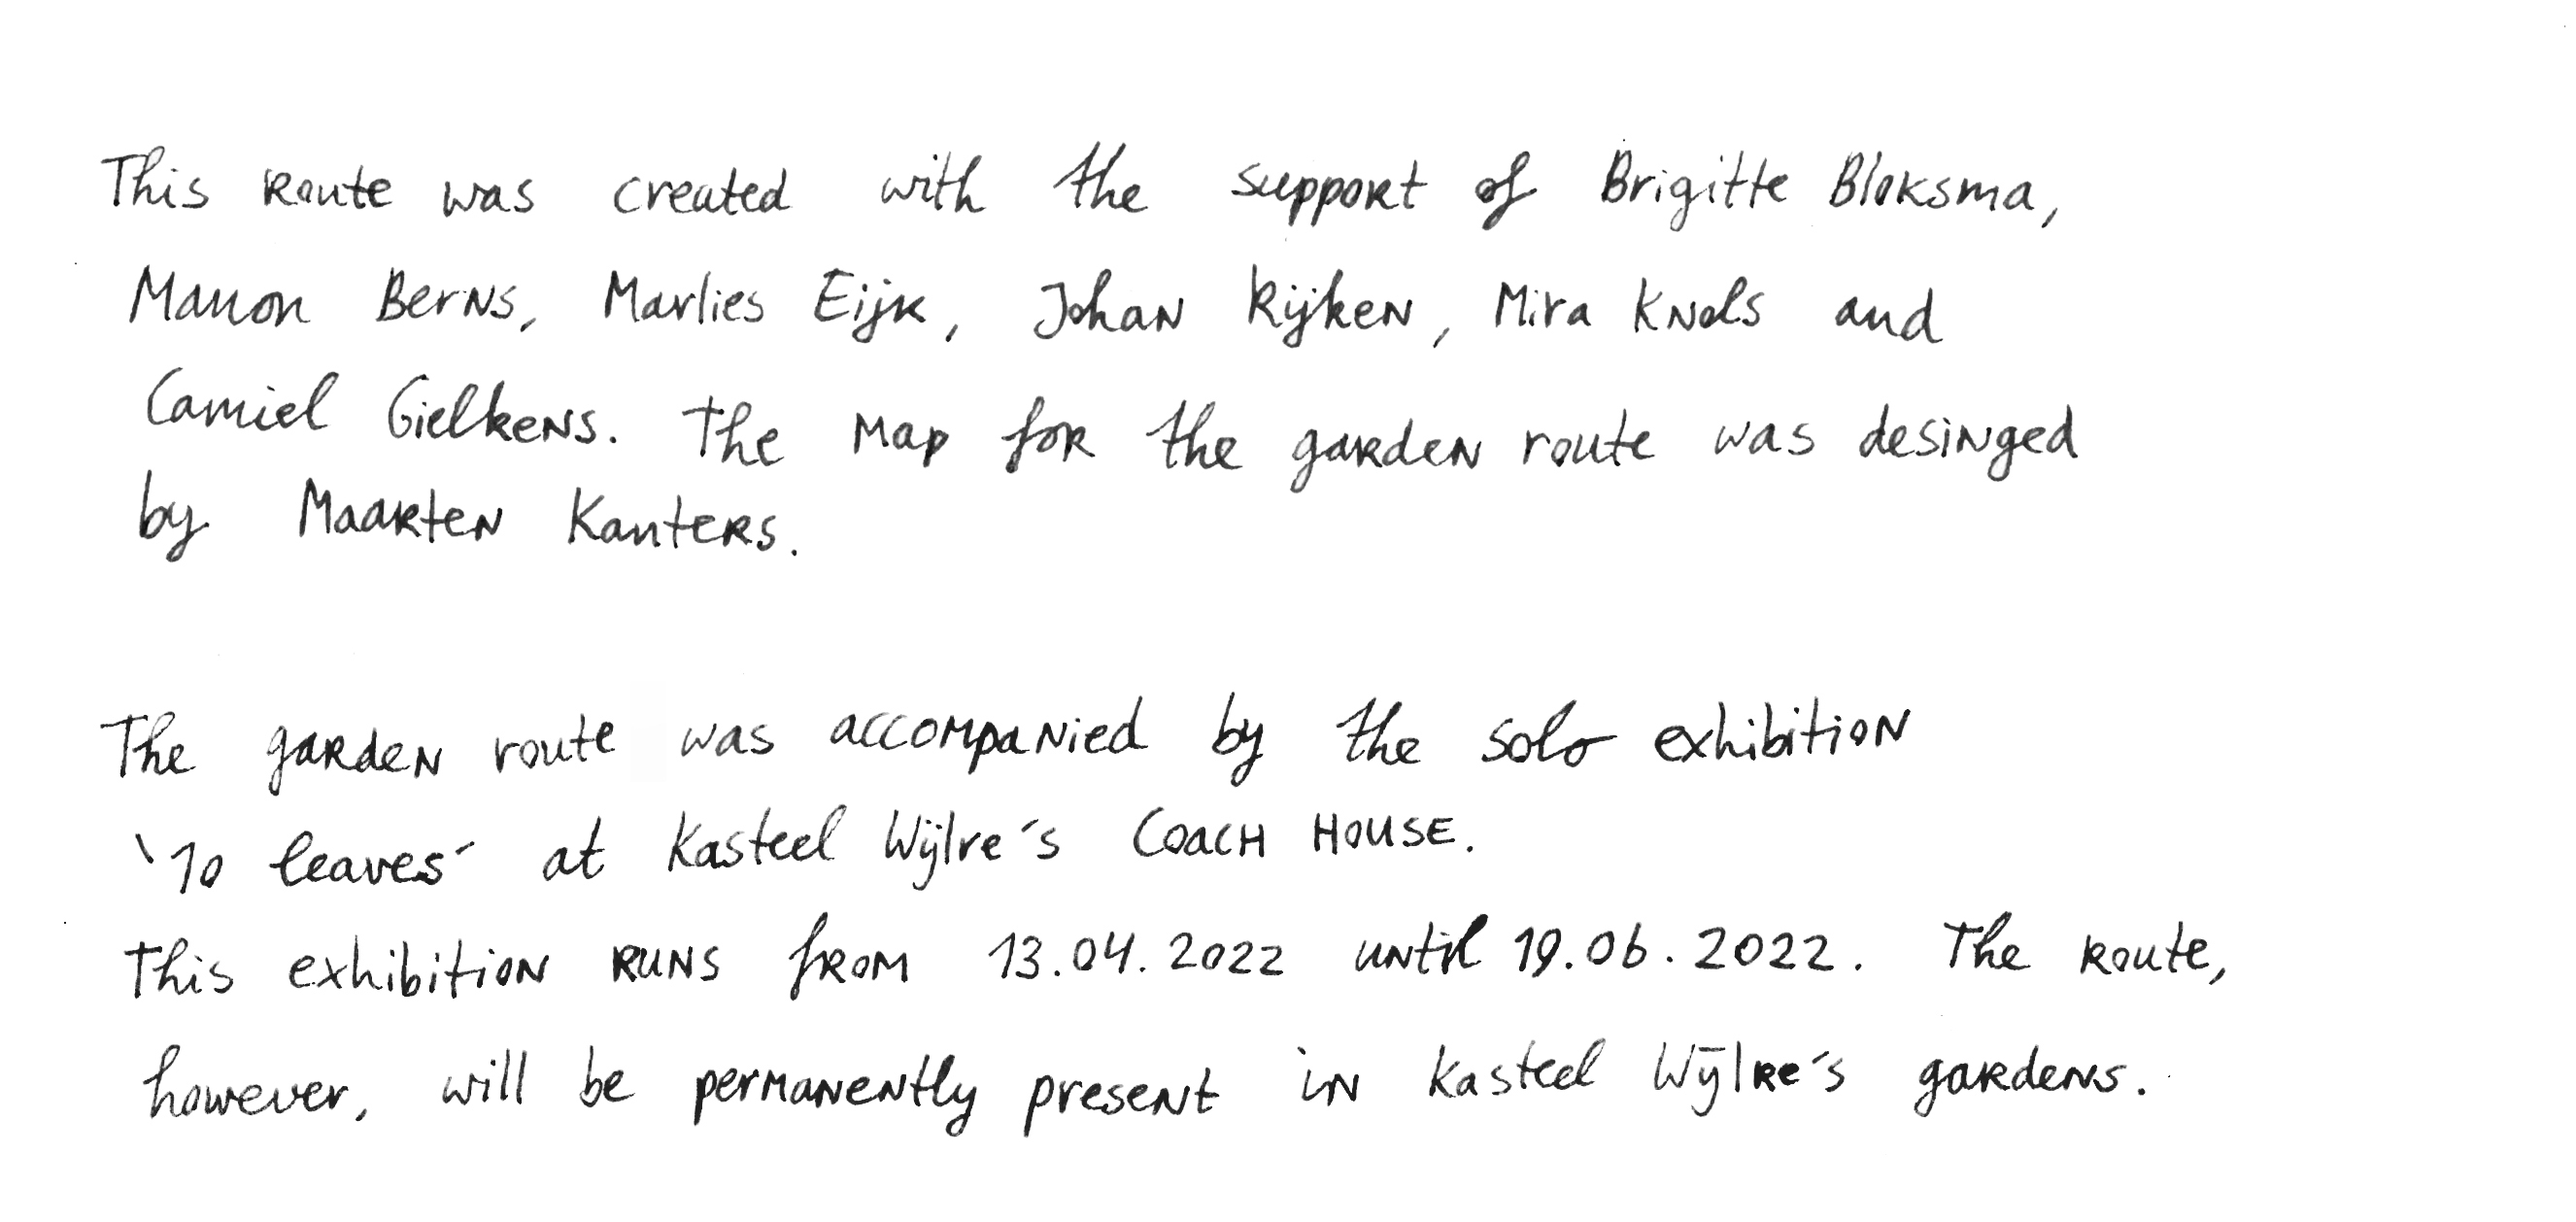 This route was created with the support of Brigitte Bloksma,
Manon Berns, Marlies Eijk, Johan Rijken, Mira Knols and
Camiel Gielkens. The map for the garden route was desinged
by Maarten Kanters.
The garden route was accompanied by the solo exhibition
'10 leaves' at Kasteel Wijlre's COACH HOUSE.
This exhibition RUNS from 13.04.2022 until 19.06.2022. The route,
however, will be permanently present in Kasteel Wijlre's gardens.